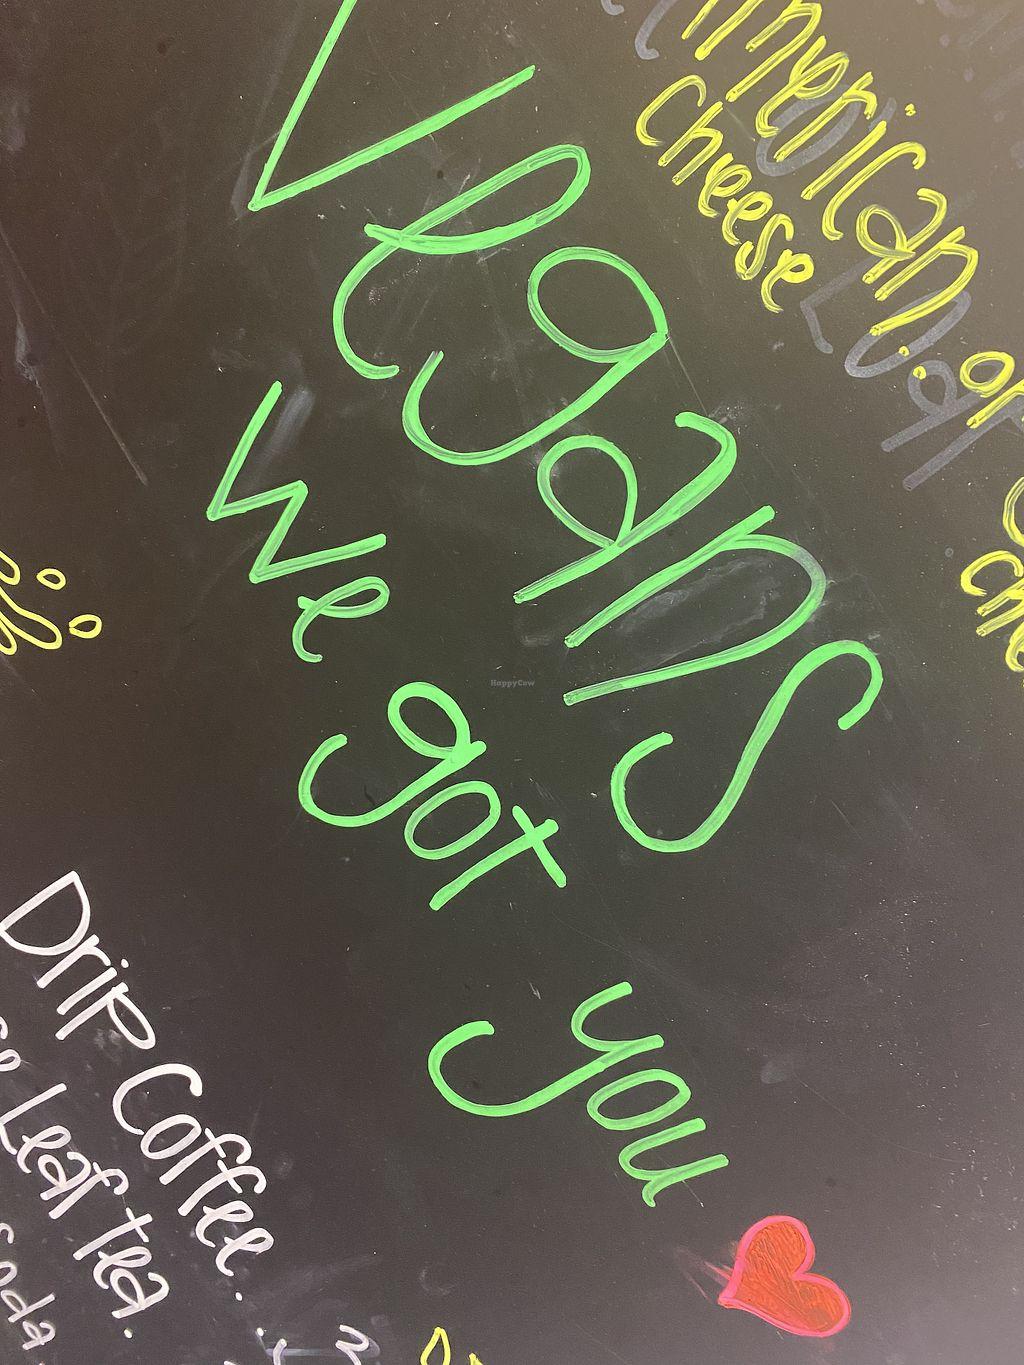 American
cheese
or
Vegans
we got
you
Drip Coffee
Leaf Tea
HappyCow